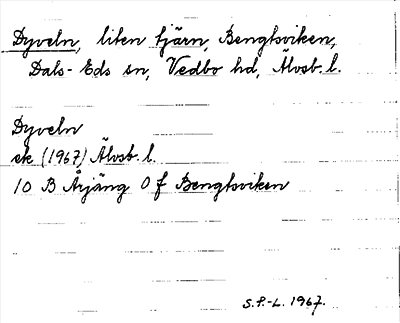 Dyveln, liten tjärn, Bengtsviken,
Dals-Eds sn, Vedbo hd, Älvsb. l.
Dyveln
ek (1967) Älvsb. l.
10 B Årjäng O f Bengtsviken
S.P.-L. 1967.